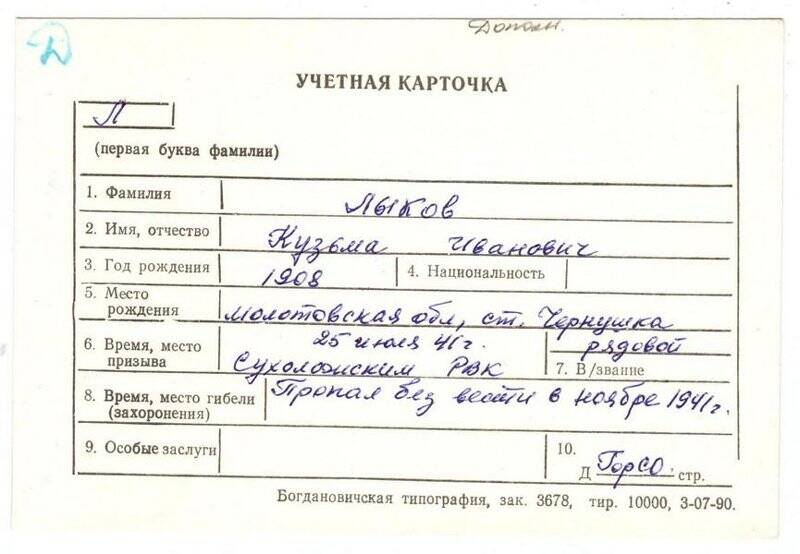 Д
Дополн.
УЧЕТНАЯ КАРТОЧКА
Л
(первая буква фамилии)
1. Фамилия Лыков
2. Имя, отчество Кузьма Иванович
3. Год рождения 1908 4. Национальность
5. Место рождения Молотовская обл, ст. Чернушка
6. Время, место призыва 25 июля 41 г. Сухоложским РВК
рядовой
7. В/звание
8. Время, место гибели (захоронения) Пропал без вести в ноябре 1941 г.
9. Особые заслуги
10.
Д ГорСО. стр.
Богдановичская типография, зак. 3678, тир. 10000, 3-07-90.